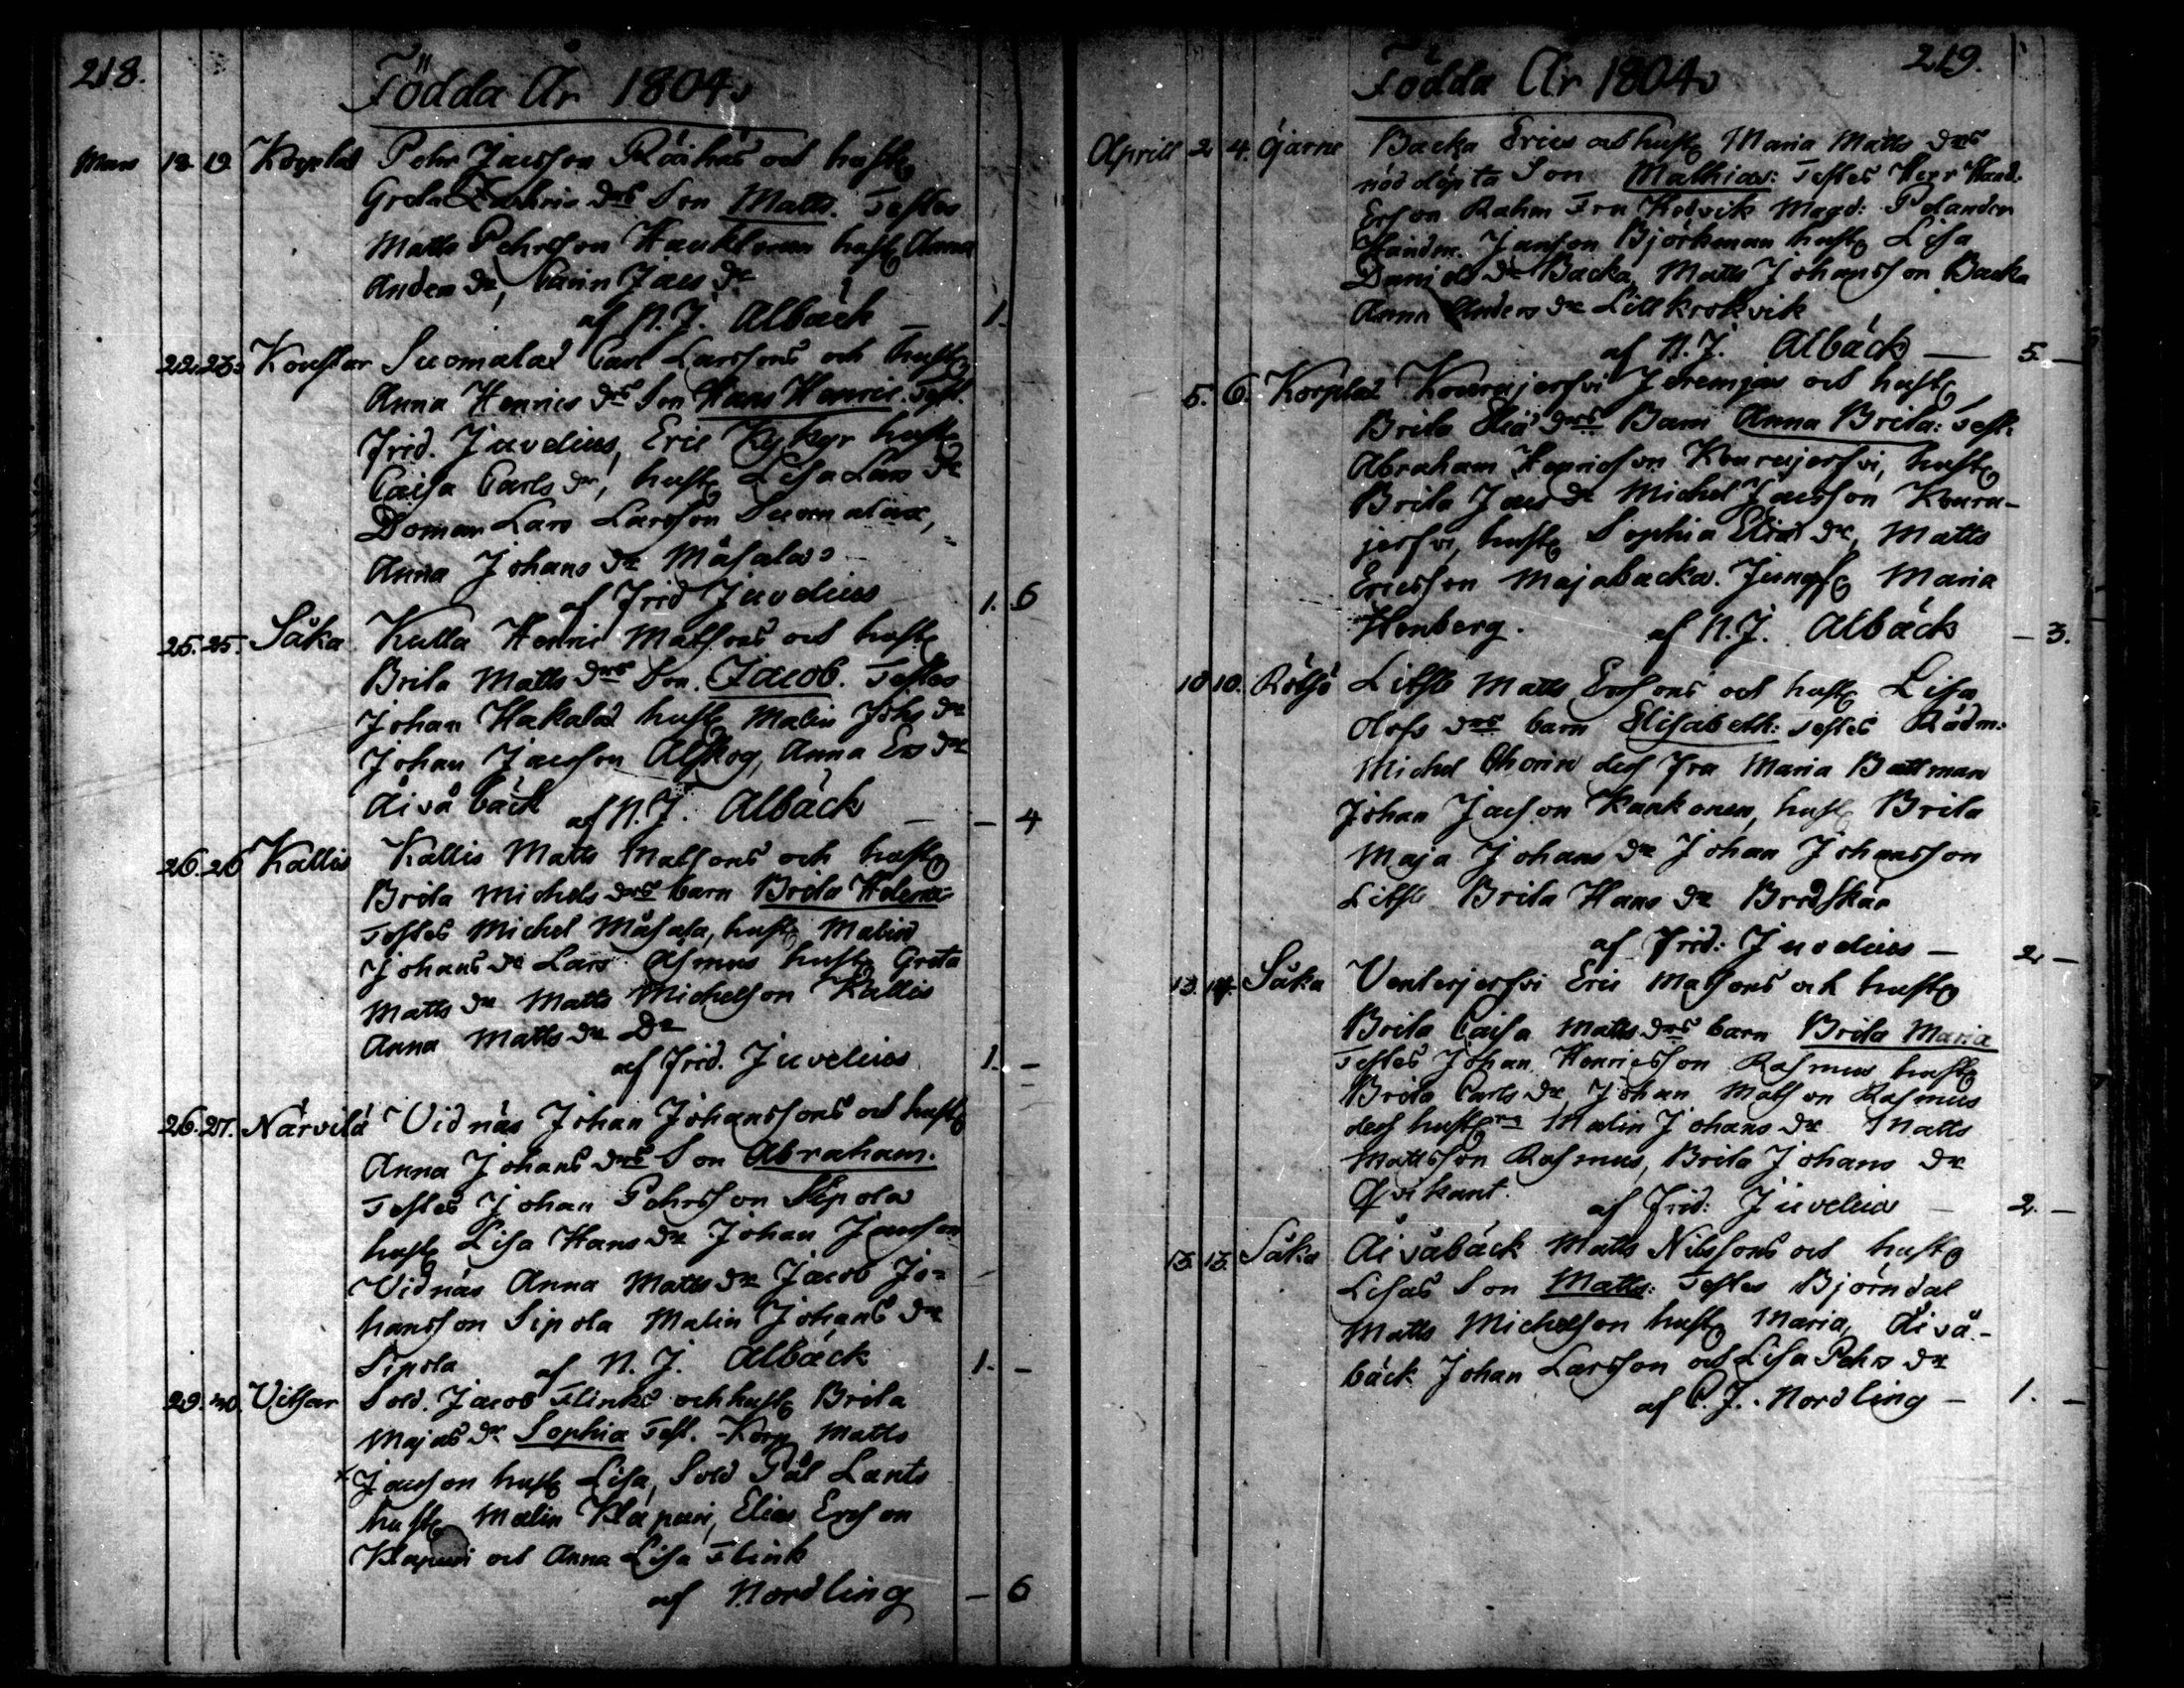 218.
Födda År 1804.
Mars 18. 19. Korplax Pehr Jacsson Räihäs och hust
Greta drs Son Matts. Testes
Matts Pehrsson Hankkonen hust Anna
Anders dr, Carin Jacs dr
af N. J. Albäck — 1.
22. 23. Konstar Suomalax Carl Larssons och hust
Anna Henrics drs Son Hans Henric. Test.
Frid. Juvelius, Eric Kykyr hust
Caisa Carls dr, hust Lisa Lars dr
Doman Lars Larsson Suomalax,
Anna Johans dr Måsala
af Frid Juvelius 1. 6
25. 25. Såka Kulla Henric Matsons och hust
Brita Matts drs Son. Jacob. Testes
Johan Hakalax hust Malin Johs dr
Johan Jacsson Alskog, Anna Ers dr
Åivåbäck af N. J. Albäck — 4
26. 26 Kallis Kallis Matts Matsons och hust
Brita Michels drs barn Brita Helena
Testes Michel Måsala, hust Malin
Johans dr Lars Asmus hust Greta
Matts dr Matts Michelson Kallis
Anna Matts dr Do
af Frid. Juvelius 1. —
26. 27. Närvilä Vidnäs Johan Johanssons och hust
Anna Johans drs Son Abraham.
Testes Johan Pehrsson Sipola
hust Lisa Hans dr Johan Jacson
Vidnäs Anna Matts dr Jacob Jo-
hansson Sipola Malin Johans dr
Sipola af N. J. Albäck 1. —
29. 30. Vitsar Sold. Jacob Flinks och hust Brita
Majas dr Sophia Test. Korp Matts
Jacson hust Lisa, Sold Pål Lants
hust Malin Klapuri, Elias Ersson
Klapuri och Anna Lisa Flink
af Nordling — 6
219.
Födda År 1804
Aprill 2 4. Öjarne Backa Erics och hust Maria Matts drs
nöddöpta Son Mathias: Testes Herr Hand.
Erson Rahm Fru Hedvik Magd: Polander
Handm. Janson Björkman hust Lisa
Daniels dr Backa, Matts Johansson Backa
Anna Anders dr Lillkrokvik
af N. J. Albäck — 5. —
5. 6. Korplax Kourajerfvi Jeremias och hust
Brita Eliæ drs Barn Anna Brita: Test:
Abraham Henricson Kourajerfvi, hust
Brita Jacs dr Michel Jacsson Koura-
jerfvi, hust Sophia Elias dr, Matts
Ericsson Majabacka. Jungf Maria
Henberg. af N. J. Albäck — 3.
10 10. Rötsö Litsle Matts Ersons och hust Lisa
Olofs drs barn Elisabeth: Testes Rådm:
Michel Chorin des Fru Maria Battman
Johan Jacson Kankonen, hust Brita
Maja Johans dr Johan Johansson
Litsle Brita Hans dr Bredskär
af Frid: Juvelius — 2 —
13. 14. Såka Venterjerfvi Eric Matsons och hust
Brita Caisa Matts drs barn Brita Maria
Testes Johan Henricsson Rasmus hust
Brita Carls dr Johan Matson Rasmus
des hust Malin Johans dr Matts
Mattsson Rasmus, Brita Johans dr
Qvikant. af Frid: Juvelius — 2. —
13. 15. Såka Åivåbäck Matts Nilssons och hust
Lisas Son Matts: Testes Björndal
Matts Michelson hust Maria, Åivå-
bäck Johan Larsson och Lisa Pehrs dr
af C. J. Nordling — 1. —